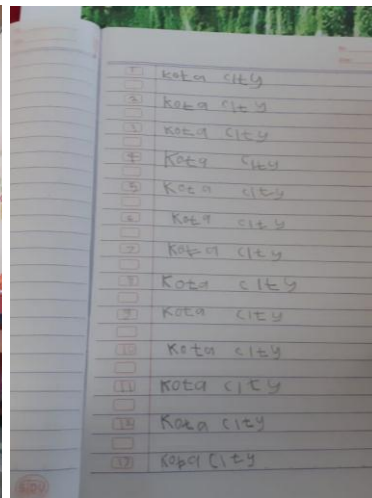 1 Kota city
2 Kota city
3 Kota city
4 Kota city
5 Kota city
6 Kota city
7 Kota city
8 Kota city
9 Kota city
10 Kota city
11 Kota city
12 Kota city
13 Kota city